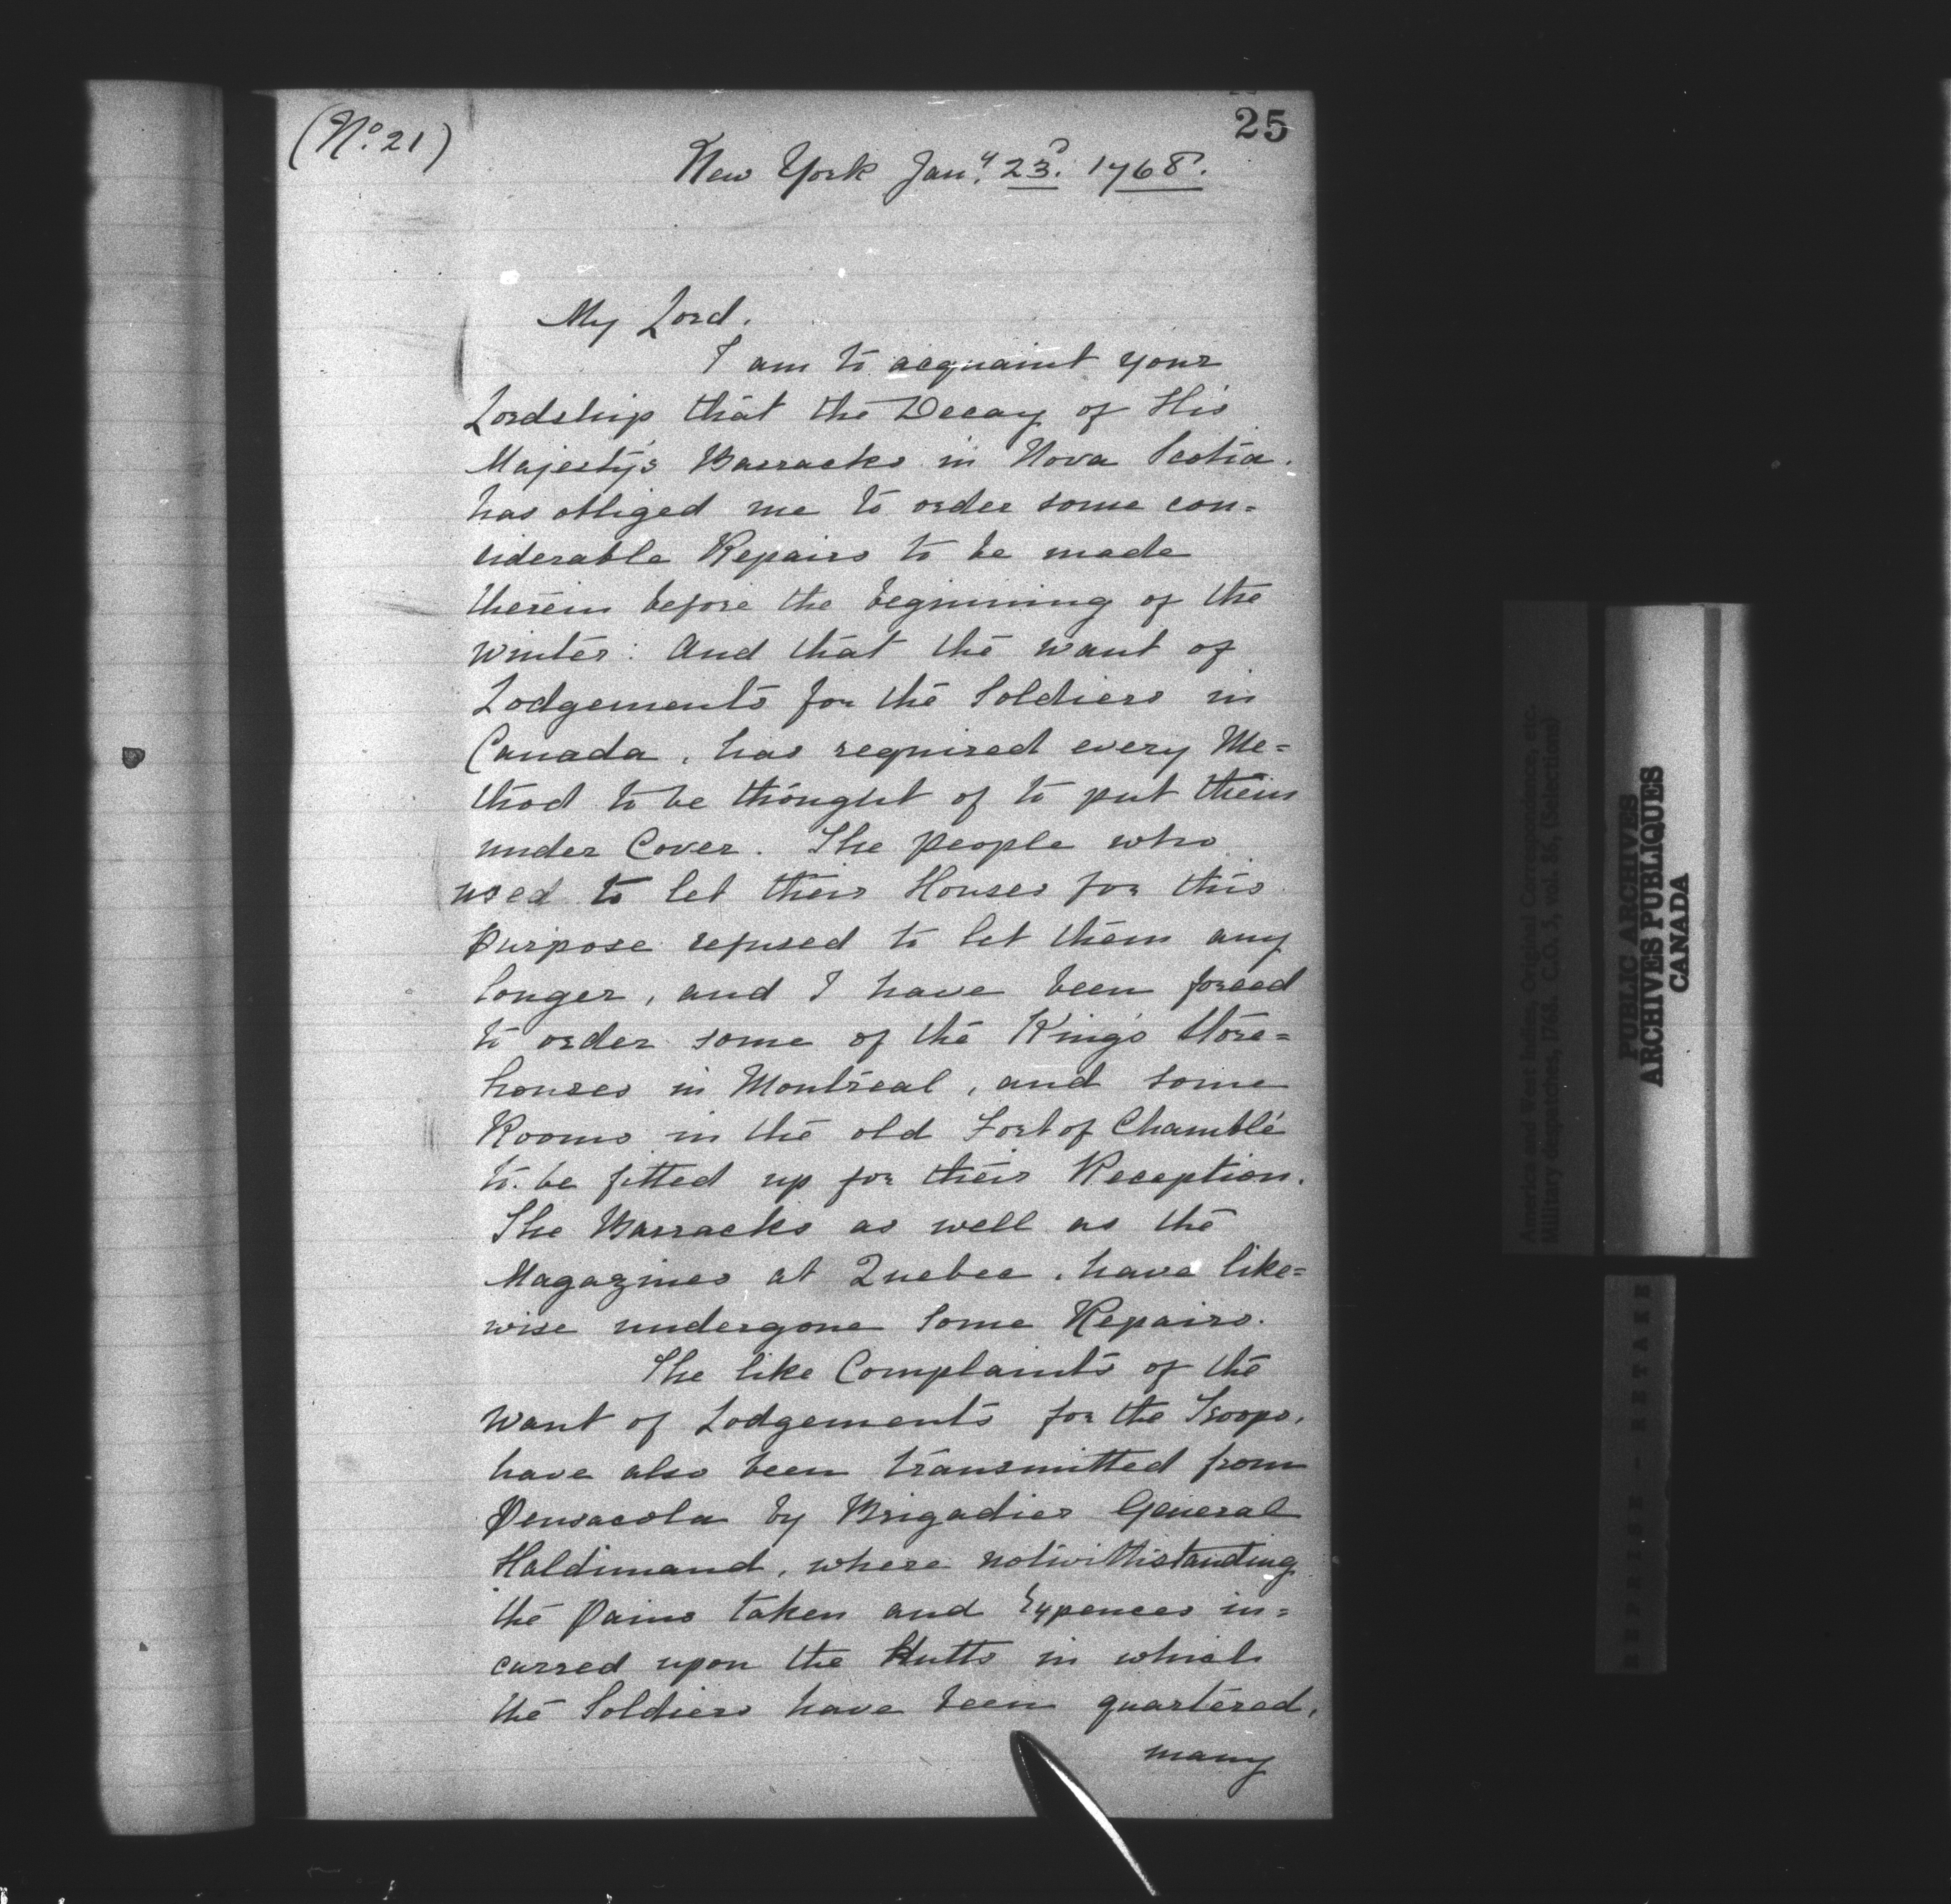 (No. 21)
25
New York Jany. 23d. 1768.
My Lord.
I am to acquaint your
Lordship that the Decay of His
Majesty's Barracks in Nova Scotia.
has obliged me to order some con=
siderable Repairs to be made
therein before the beginning of the
Winter: And that the want of
Lodgements for the Soldiers in
Canada, has required every Me=
thod to be thought of to put them
under Cover. The people who
used to let their Houses for this
Purpose refused to let them any
longer, and I have been forced
to order some of the King's Store=
houses in Montreal, and some
Rooms in the old Fort of Chamblé
to be fitted up for their Reception.
The Barracks as well as the
Magazines at Quebec, have like=
wise undergone some Repairs.
The like Complaints of the
Want of Lodgements for the Troops,
have also been transmitted from
Pensacola by Brigadier General
Haldimand, where notwithstanding
the Pains taken and Expences in=
curred upon the Hutts in which
the Soldiers have been quartered,
many
America and West Indies, Original Correspondence, etc.
Military despatches, 1768. C.O. 5, vol. 86, (Selections)
PUBLIC ARCHIVES
ARCHIVES PUBLIQUES
CANADA
REPRISE - RETAKE